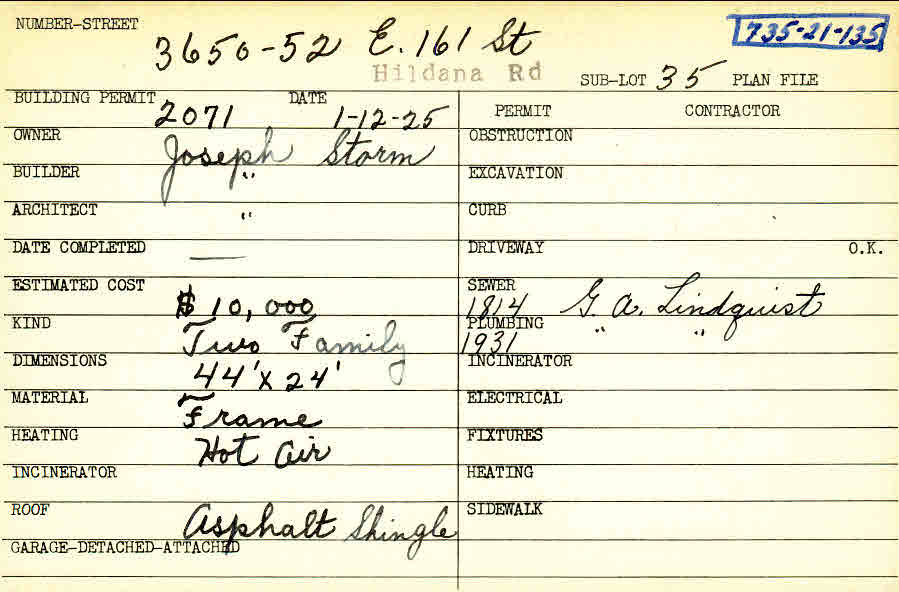 NUMBER-STREET 3650-52 E. 161 St 735-21-135
Hildana Rd SUB-LOT 35 PLAN FILE
BUILDING PERMIT 2071 DATE 1-12-25
PERMIT CONTRACTOR
OWNER Joseph Storm
OBSTRUCTION
BUILDER "
EXCAVATION
ARCHITECT "
CURB
DATE COMPLETED —
DRIVEWAY O.K.
ESTIMATED COST $10,000
SEWER 1814 G. A. Lindquist
KIND Two Family
PLUMBING 1931 " "
DIMENSIONS 44' x 24'
INCINERATOR
MATERIAL Frame
ELECTRICAL
HEATING Hot Air
FIXTURES
INCINERATOR
HEATING
ROOF Asphalt Shingle
SIDEWALK
GARAGE-DETACHED-ATTACHED